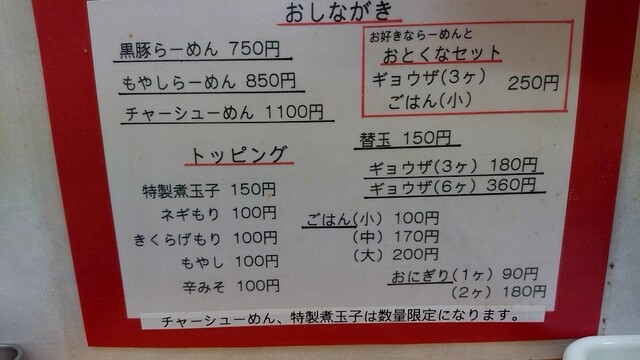 おしながき
黒豚らーめん 750円
もやしらーめん 850円
チャーシューめん 1100円
お好きならーめんと
おとくなセット
ギョウザ(3ヶ)
ごはん(小)
250円
替玉 150円
ギョウザ(3ヶ) 180円
ギョウザ(6ヶ) 360円
トッピング
特製煮玉子 150円
ネギもり 100円
きくらげもり 100円
もやし 100円
辛みそ 100円
ごはん(小) 100円
(中) 170円
(大) 200円
おにぎり(1ヶ) 90円
(2ヶ) 180円
チャーシューめん、特製煮玉子は数量限定になります。